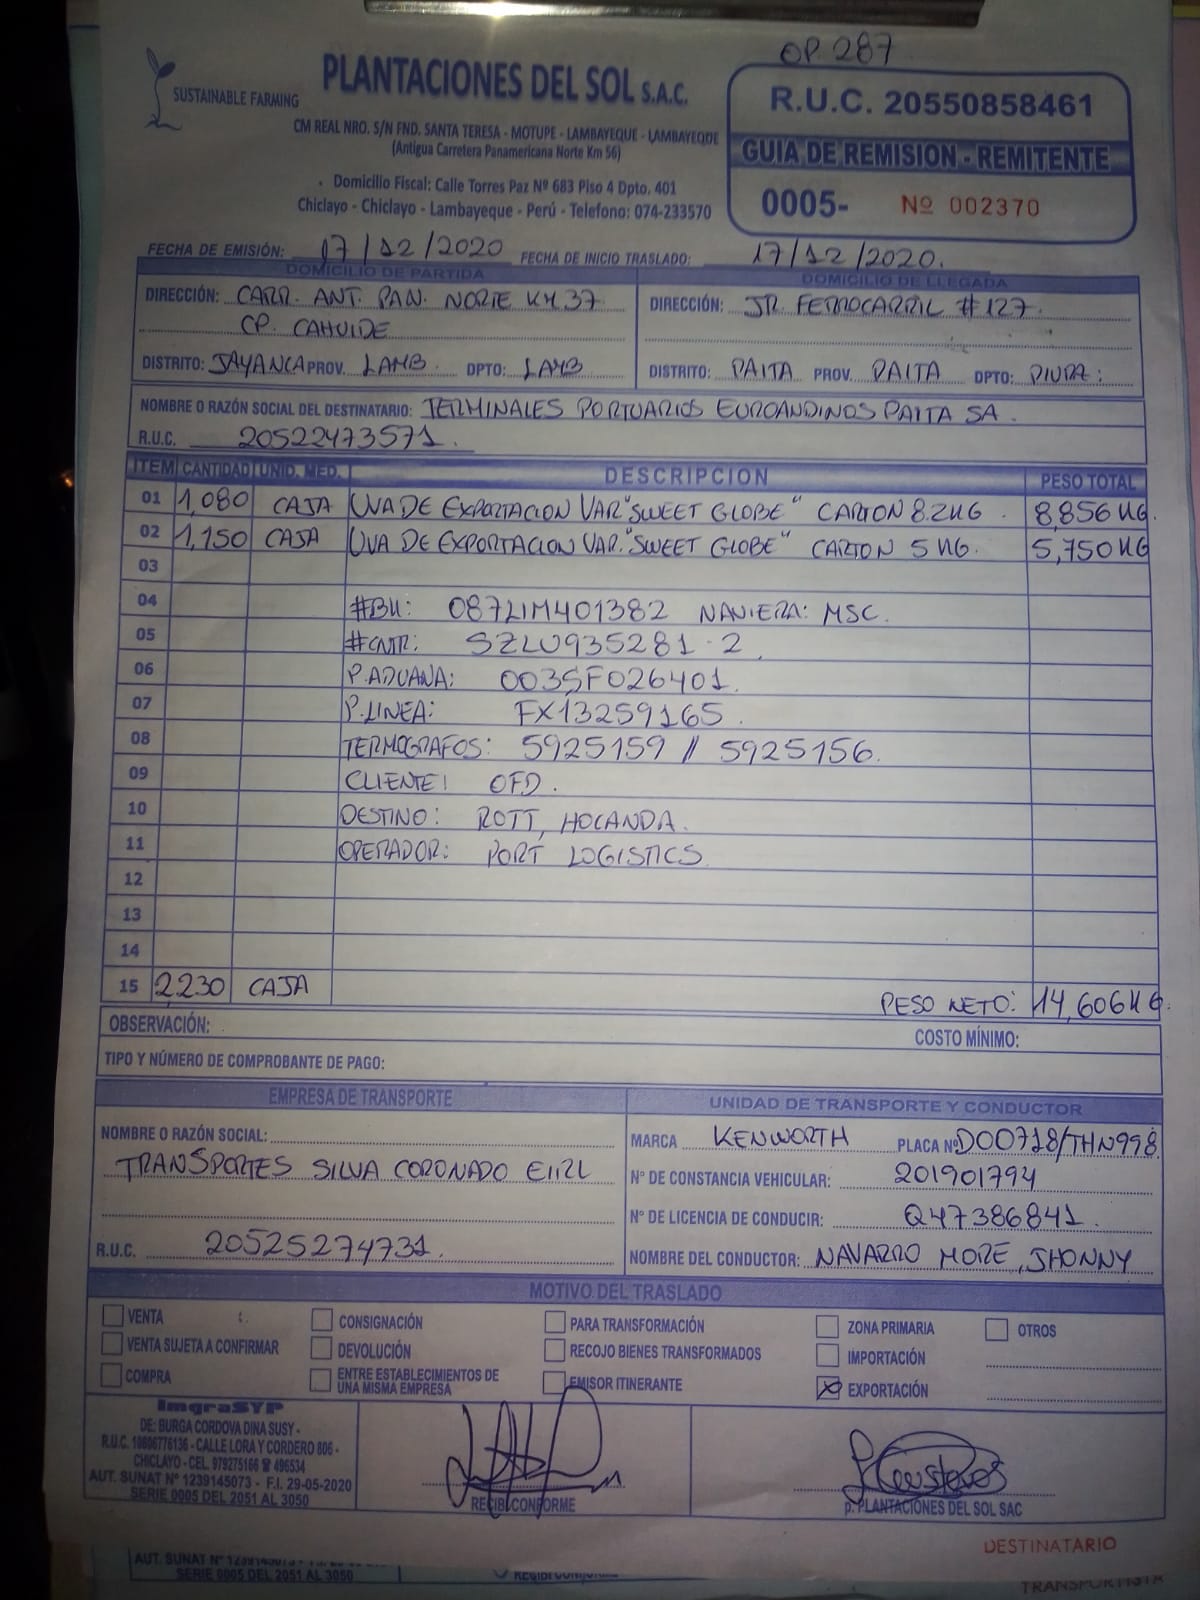 OP. 287
SUSTAINABLE FARMING
PLANTACIONES DEL SOL S.A.C.
CM REAL NRO. S/N FND. SANTA TERESA - MOTUPE - LAMBAYEQUE - LAMBAYEQUE
(Antigua Carretera Panamericana Norte Km 56)
Domicilio Fiscal: Calle Torres Paz Nº 683 Piso 4 Dpto. 401
Chiclayo - Chiclayo - Lambayeque - Perú - Telefono: 074-233570
R.U.C. 20550858461
GUIA DE REMISION - REMITENTE
0005- Nº 002370
FECHA DE EMISIÓN: 17/12/2020 FECHA DE INICIO TRASLADO: 17/12/2020.
DOMICILIO DE PARTIDA
DIRECCIÓN: CARR. ANT. PAN. NORTE KM 37
CP. CAHUIDE
DISTRITO: JAYANCA PROV. LAMB. DPTO: LAMB
DOMICILIO DE LLEGADA
DIRECCIÓN: JR. FERROCARRIL #127.
DISTRITO: PAITA PROV. PAITA DPTO: PIURA.
NOMBRE O RAZÓN SOCIAL DEL DESTINATARIO: TERMINALES PORTUARIOS EUROANDINOS PAITA SA.
R.U.C. 20522473571.
ITEM CANTIDAD UNID. MED. DESCRIPCION PESO TOTAL
01 1,080 CAJA UVA DE EXPORTACION VAR "SWEET GLOBE" CARTON 8.2KG. 8,856 KG.
02 1,150 CAJA UVA DE EXPORTACION VAR. "SWEET GLOBE" CARTON 5 KG. 5,750 KG
03
04 #BK: 087LIM401382 NAVIERA: MSC.
05 #CNTR: SZLU935281-2
06 P.ADUANA: 003SF026401.
07 P.LINEA: FX13259165.
08 TERMOGRAFOS: 5925159 // 5925156.
09 CLIENTE: OFD.
10 DESTINO: ROTT, HOLANDA.
11 OPERADOR: PORT LOGISTICS
12
13
14
15 2,230 CAJA PESO NETO: 14,606 KG.
OBSERVACIÓN: COSTO MÍNIMO:
TIPO Y NÚMERO DE COMPROBANTE DE PAGO:
EMPRESA DE TRANSPORTE
NOMBRE O RAZÓN SOCIAL:
TRANSPORTES SILVA CORONADO EIRL
R.U.C. 20525274731.
UNIDAD DE TRANSPORTE Y CONDUCTOR
MARCA KENWORTH PLACA Nº D00718/THN998
Nº DE CONSTANCIA VEHICULAR: 201901794
Nº DE LICENCIA DE CONDUCIR: Q47386841.
NOMBRE DEL CONDUCTOR: NAVARRO MORE, JHONNY
MOTIVO DEL TRASLADO
VENTA CONSIGNACIÓN PARA TRANSFORMACIÓN ZONA PRIMARIA OTROS
VENTA SUJETA A CONFIRMAR DEVOLUCIÓN RECOJO BIENES TRANSFORMADOS IMPORTACIÓN
COMPRA ENTRE ESTABLECIMIENTOS DE UNA MISMA EMPRESA EMISOR ITINERANTE EXPORTACIÓN
ImgraSYP
DE: BURGA CORDOVA DINA SUSY -
R.U.C. 10806776136 - CALLE LORA Y CORDERO 806 -
CHICLAYO - CEL. 979275166 ☎ 496534
AUT. SUNAT Nº 1239145073 - F.I. 29-05-2020
SERIE 0005 DEL 2051 AL 3050
RECIBI CONFORME
p. PLANTACIONES DEL SOL SAC
DESTINATARIO
SERIE 0005 DEL 2051 AL 3050
RECIBI CONFORME
TRANSPORTISTA